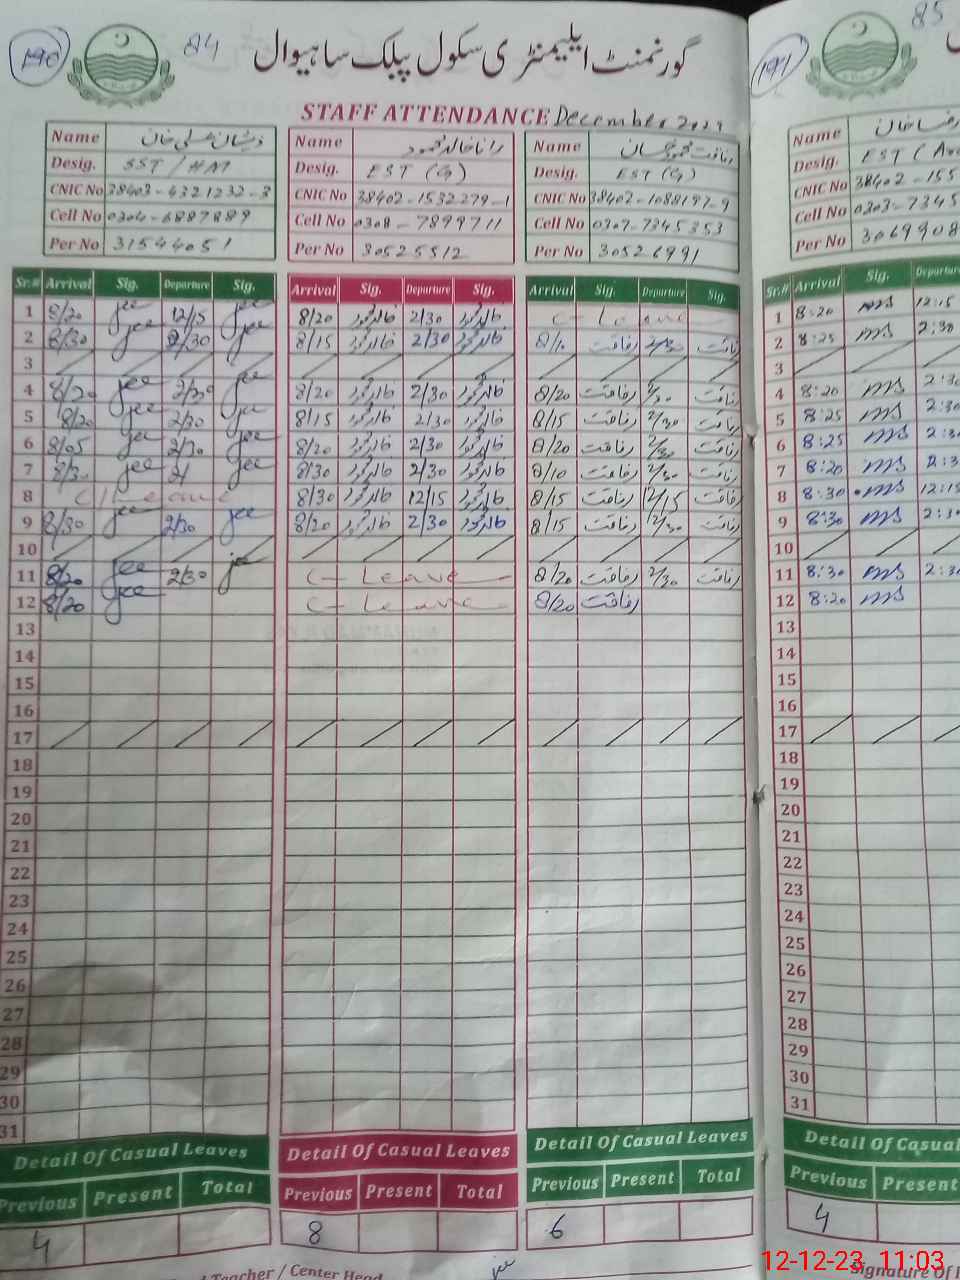 190
84
گورنمنٹ ایلیمنٹری سکول پبلک ساہیوال
STAFF ATTENDANCE December 2023
Name ذیشان علی خان
Desig. SST / HM
CNIC No 38403-4321232-3
Cell No 0304-6887889
Per No 31544051
Name رانا خالد محمود
Desig. EST (G)
CNIC No 38402-1532279-1
Cell No 0308-7899711
Per No 30525512
Name رفاقت محمود
Desig. EST (G)
CNIC No 38402-1088197-9
Cell No 0307-7345353
Per No 30526991
Sr.# Arrival Sig. Departure Sig. Arrival Sig. Departure Sig. Arrival Sig. Departure Sig.
1 8/20 jee 12/15 jee 8/20 خالد محمود 2/30 خالد محمود C-Leave
2 8/30 jee 2/30 jee 8/15 خالد محمود 2/30 خالد محمود 8/10 رفاقت 2/30 رفاقت
3
4 8/20 jee 2/30 jee 8/20 خالد محمود 2/30 خالد محمود 8/20 رفاقت 2/30 رفاقت
5 8/20 jee 2/30 jee 8/15 خالد محمود 2/30 خالد محمود 8/15 رفاقت 2/30 رفاقت
6 8/05 jee 2/30 jee 8/20 خالد محمود 2/30 خالد محمود 8/20 رفاقت 2/30 رفاقت
7 8/30 jee 2/ jee 8/30 خالد محمود 2/30 خالد محمود 8/10 رفاقت 2/30 رفاقت
8 C/Leave 8/30 خالد محمود 12/15 خالد محمود 8/15 رفاقت 12/15 رفاقت
9 8/30 jee 2/30 jee 8/20 خالد محمود 2/30 خالد محمود 8/15 رفاقت 12/30 رفاقت
10
11 8/20 jee 2/30 jee C-Leave 8/20 رفاقت 2/30 رفاقت
12 8/20 jee C-Leave 8/20 رفاقت
13
14
15
16
17
18
19
20
21
22
23
24
25
26
27
28
29
30
31
Detail Of Casual Leaves
Previous Present Total
4
Detail Of Casual Leaves
Previous Present Total
8
Detail Of Casual Leaves
Previous Present Total
6
Teacher / Center Head
jee
191
85
Name رضا خان
Desig. EST (
CNIC No 38402-155
Cell No 0303-7345
Per No 3069908
Sr.# Arrival Sig. Departure
1 8:20 ms 12:15
2 8:25 ms 2:30
3
4 8:20 ms 2:30
5 8:25 ms 2:30
6 8:25 ms 2:3
7 8:20 ms 2:3
8 8:30 ms 12:15
9 8:30 ms 2:3
10
11 8:30 ms 2:30
12 8:20 ms
13
14
15
16
17
18
19
20
21
22
23
24
25
26
27
28
29
30
31
Detail Of Casual
Previous Present
4
Signature Of
12-12-23 11:03